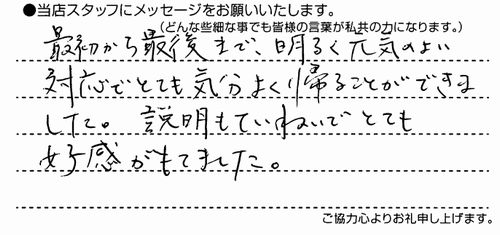 ●当店スタッフにメッセージをお願いいたします。
（どんな些細な事でも皆様の言葉が私共の力になります。）
最初から最後まで、明るく元気のよい
対応でとても気分よく帰ることができま
した。説明もていねいでとても
好感がもてました。
ご協力心よりお礼申し上げます。